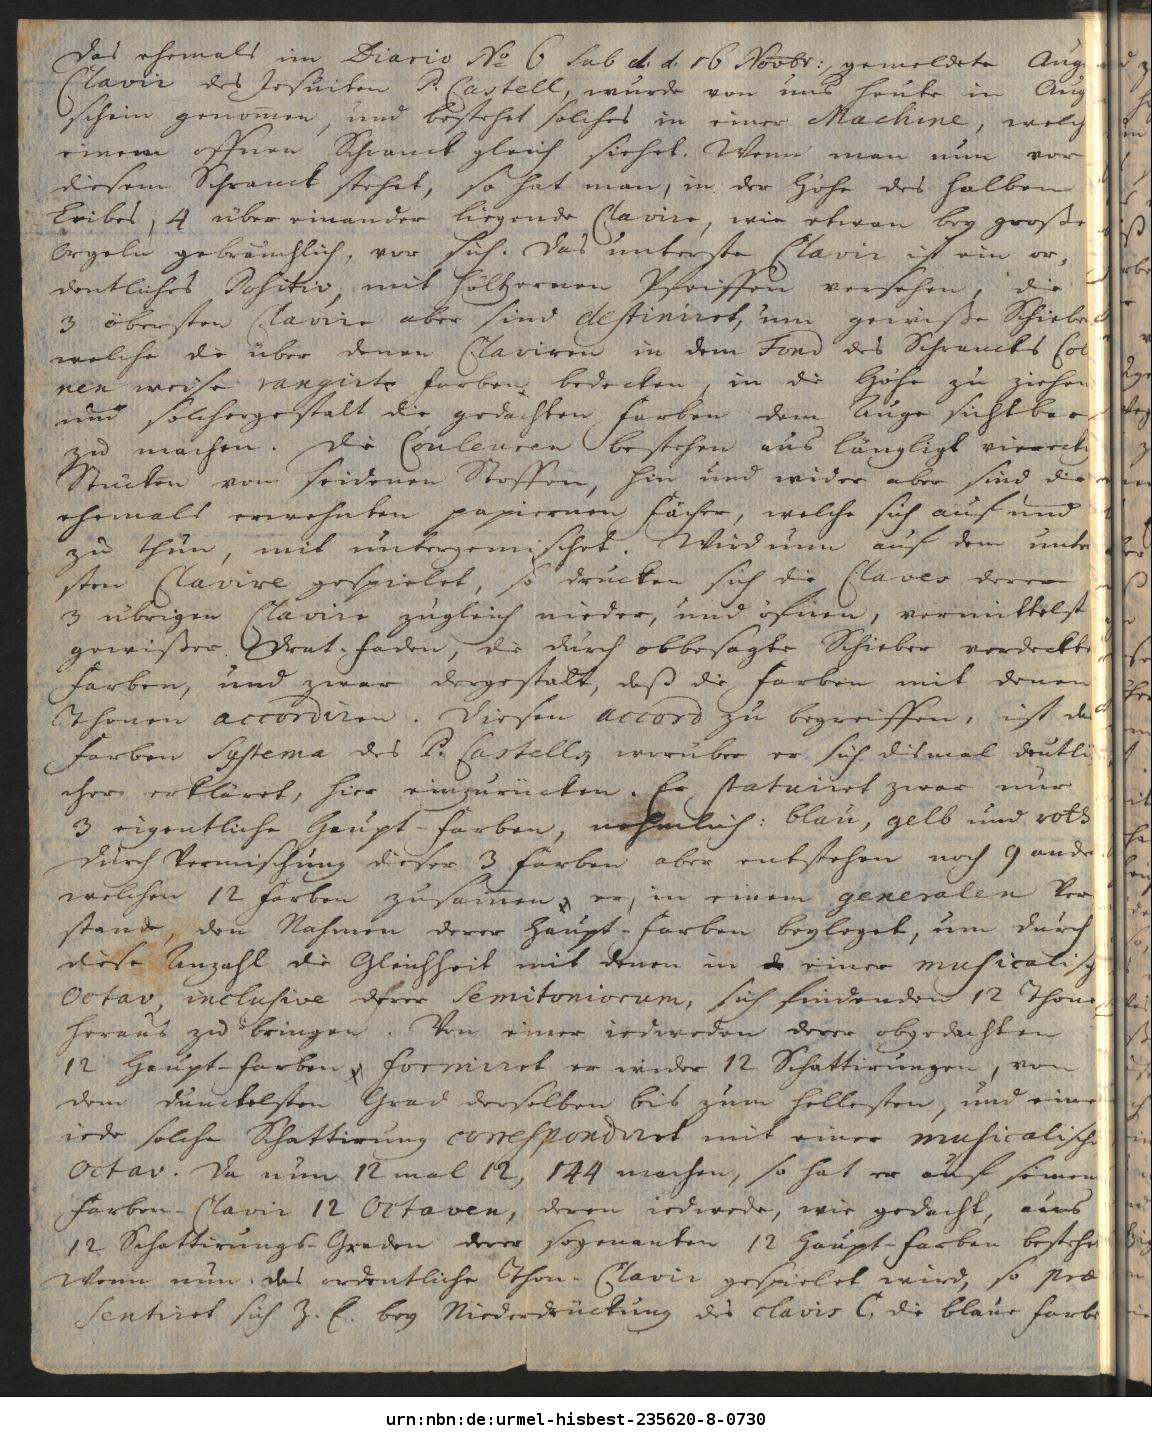 Das ehemals im Diario No 6 sub d. d. 16 Novbr:, gemeldete Aug
Clavir des Jesuiten P. Castell, wurde von uns heute in Aug
schein genom̄en, und bestehet solches in einer Machine, welch
einem offnen Schranck gleich siehet. Wenn man nun vor
diesem Schranck stehet, so hat man, in der Höhe des halben
Leibes, 4 über einander liegende Clavire, wie etwan bey große
Orgeln gebräuchlich, vor sich. Das unterste Clavir ist ein or,
dentliches Positiv, mit höltzernen Pfeiffen versehen, die
3 öbersten Clavire aber sind destiniret, um gewiße Schieber
welche die über denen Claviren in dem Fond des Schrancks Col
nen weise rangirte Farben bedecken, in die Höhe zu ziehen
und solchergestalt die gedachten Farben dem Auge sichtbar
zu machen. Die Couleuren bestehen aus längligt vierecki
Stücken von seidenen Stoffen, hin und wider aber sind die
ehemals erwehnten papiernen Fächer, welche sich auf und
zu thun, mit untergemischet. Wird nun auf dem unte
sten Clavire gespielet, so drucken sich die Claves derer
3 übrigen Clavire zugleich nieder, und öfnen, vermittelst
gewißer Drat-Faden, die durch obbesagte Schieber verdeckte
Farben, und zwar dergestalt, daß die Farben mit denen
Thonen accordiren. Diesen accord zu begreiffen, ist da
Farben Systema des P. Castells, worüber er sich dismal deutli
cher erkläret, hier einzurücken. Er statuiret zwar nur
3 eigentliche Haupt-Farben, nehmlich: blau, gelb und roth
durch Vermischung dieser 3 Farben aber entstehen noch 9 ande
welchen 12 Farben zusam̄en, er, in einem generalen Ver
stande, den Nahmen derer Haupt-Farben beyleget, um durch
diese Anzahl die Gleichheit mit denen in einer musicalisch
Octav, inclusive derer Semitoniorum, sich findenden 12 Thone
heraus zu bringen. Von einer iedweden derer obgedachten
12 Haupt-Farben formiret er wider 12 Schattirungen, von
dem dunckelsten Grad derselben bis zum hellesten, und eine
iede solche Schattirung correspondiret mit einer musicalische
Octav. Da nun 12 mal 12, 144 machen, so hat er auf seinem
Farben-Clavir 12 Octaven, deren iedwede, wie gedacht, aus
12 Schattirungs-Graden derer sogenanten 12 Haupt-Farben bestehe
Wenn nun das ordentliche Thon-Clavir gespielet wird, so præ
sentiret sich z. E. bey Niederdrückung des clavis C, die blaue Farbe
urn:nbn:de:urmel-hisbest-235620-8-0730